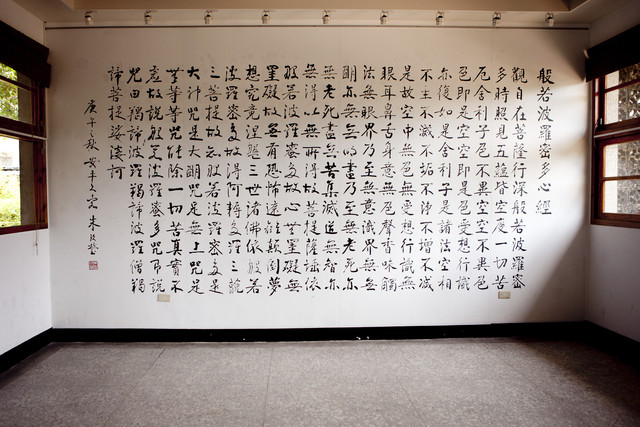 般若波羅密多心經
觀自在菩薩行深般若波羅密
多時照見五蘊皆空度一切苦
厄舍利子色不異空空不異色
色即是空空即是色受想行識
亦復如是舍利子是諸法空相
不生不滅不垢不淨不增不減
是故空中無色無受想行識無
眼耳鼻舌身意無色聲香味觸
法無眼界乃至無意識界無無
明亦無無明盡乃至無老死亦
無老死盡無苦集滅道無智亦
無得以無所得故菩提薩埵依
般若波羅密多故心無罣礙無
罣礙故無有恐怖遠離顛倒夢
想究竟涅槃三世諸佛依般若
波羅密多故得阿耨多羅三藐
三菩提故知般若波羅密多是
大神咒是大明咒是無上咒是
無等等咒能除一切苦真實不
虛故說般若波羅密多咒即說
咒曰羯諦波羅羯諦波羅僧羯
諦菩提娑婆訶
庚午之秋 安平久客 朱玖瑩